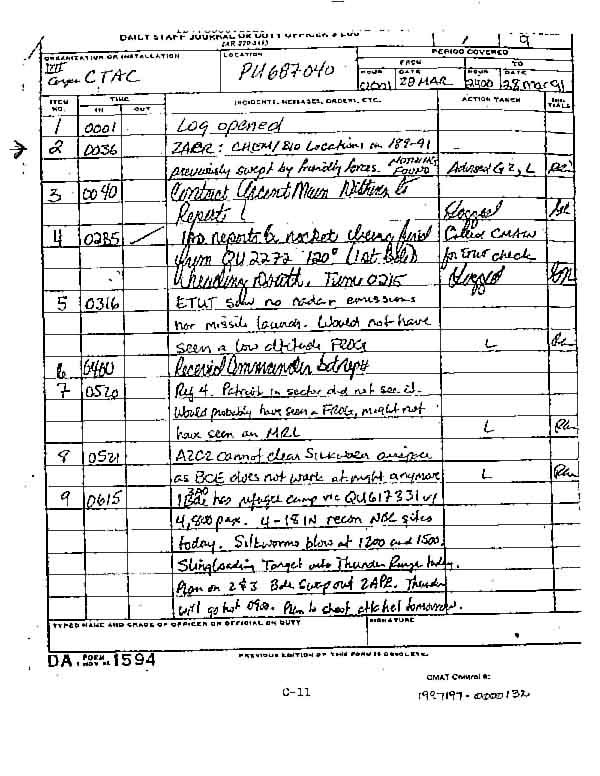 DAILY STAFF JOURNAL OR DUTY OFFICER'S LOG
(AR 220-346)
1 9
ORGANIZATION OR INSTALLATION
VII Corps CTAC
LOCATION
PU687040
PERIOD COVERED
FROM TO
HOUR DATE HOUR DATE
0001 28 MAR 2400 28 Mar 91
ITEM NO. TIME INCIDENTS, MESSAGES, ORDERS, ETC. ACTION TAKEN INITIALS
IN OUT
1 0001 Log opened
2 0036 2ACR: CHEM/BIO Locations on 188-91
previously swept by friendly forces. NOTHING FOUND Advised G2, L
3 0040 Contact Main Nothing to
Report L Logged
4 0235 1AD reports rocket being fired Called CMAW
from QU2272 120° (1st Bde) for check
heading South, Time 0215 Logged
5 0316 ETUT saw no radar emissions
nor missile launch. Would not have
seen a low altitude FROG L
6 0400 Received Commanders Sitreps
7 0520 Ref 4. Patriot in sector did not see it.
Would probably have seen a FROG, might not
have seen an MRL L
8 0521 A2C2 cannot clear Silkworm airspace
as BCE does not work at night anymore L
9 0615 1 Bde has refugee camp vic QU617331 w/
4,800 pax. 4-18 IN recon NBC sites
today. Silkworms blow at 1200 and 1500.
Slingloading Target onto Thunder Range today.
Plan on 2&3 Bde Swap out 2ACR. Thunder
will go hot 0900. Plan to shoot tomorrow.
TYPED NAME AND GRADE OF OFFICER OR OFFICIAL ON DUTY SIGNATURE
DA FORM 1594
PREVIOUS EDITION OF THIS FORM IS OBSOLETE.
CMAT Control #:
C-11
1997197-0000132